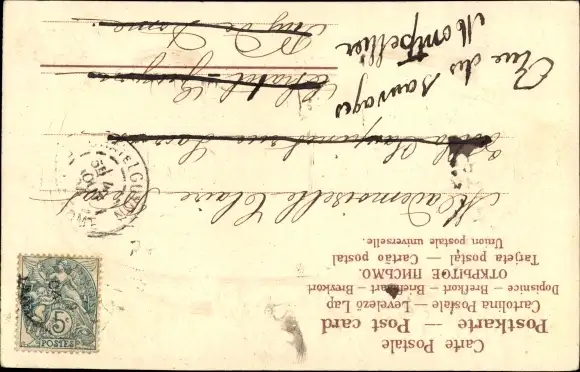 Carte Postale
Postkarte — Post card
Cartolina Postale — Levelező Lap
Dopisnice — Brefkort — Briefkaart — Brevkort
ОТКРЫТОЕ ПИСЬМО.
Tarjeta postal — Cartão postal
Union postale universelle.
Mademoiselle Claire
Chatel - Guyon
Puy de Dome
Rue des sauvages
Montpellier
5c
POSTES